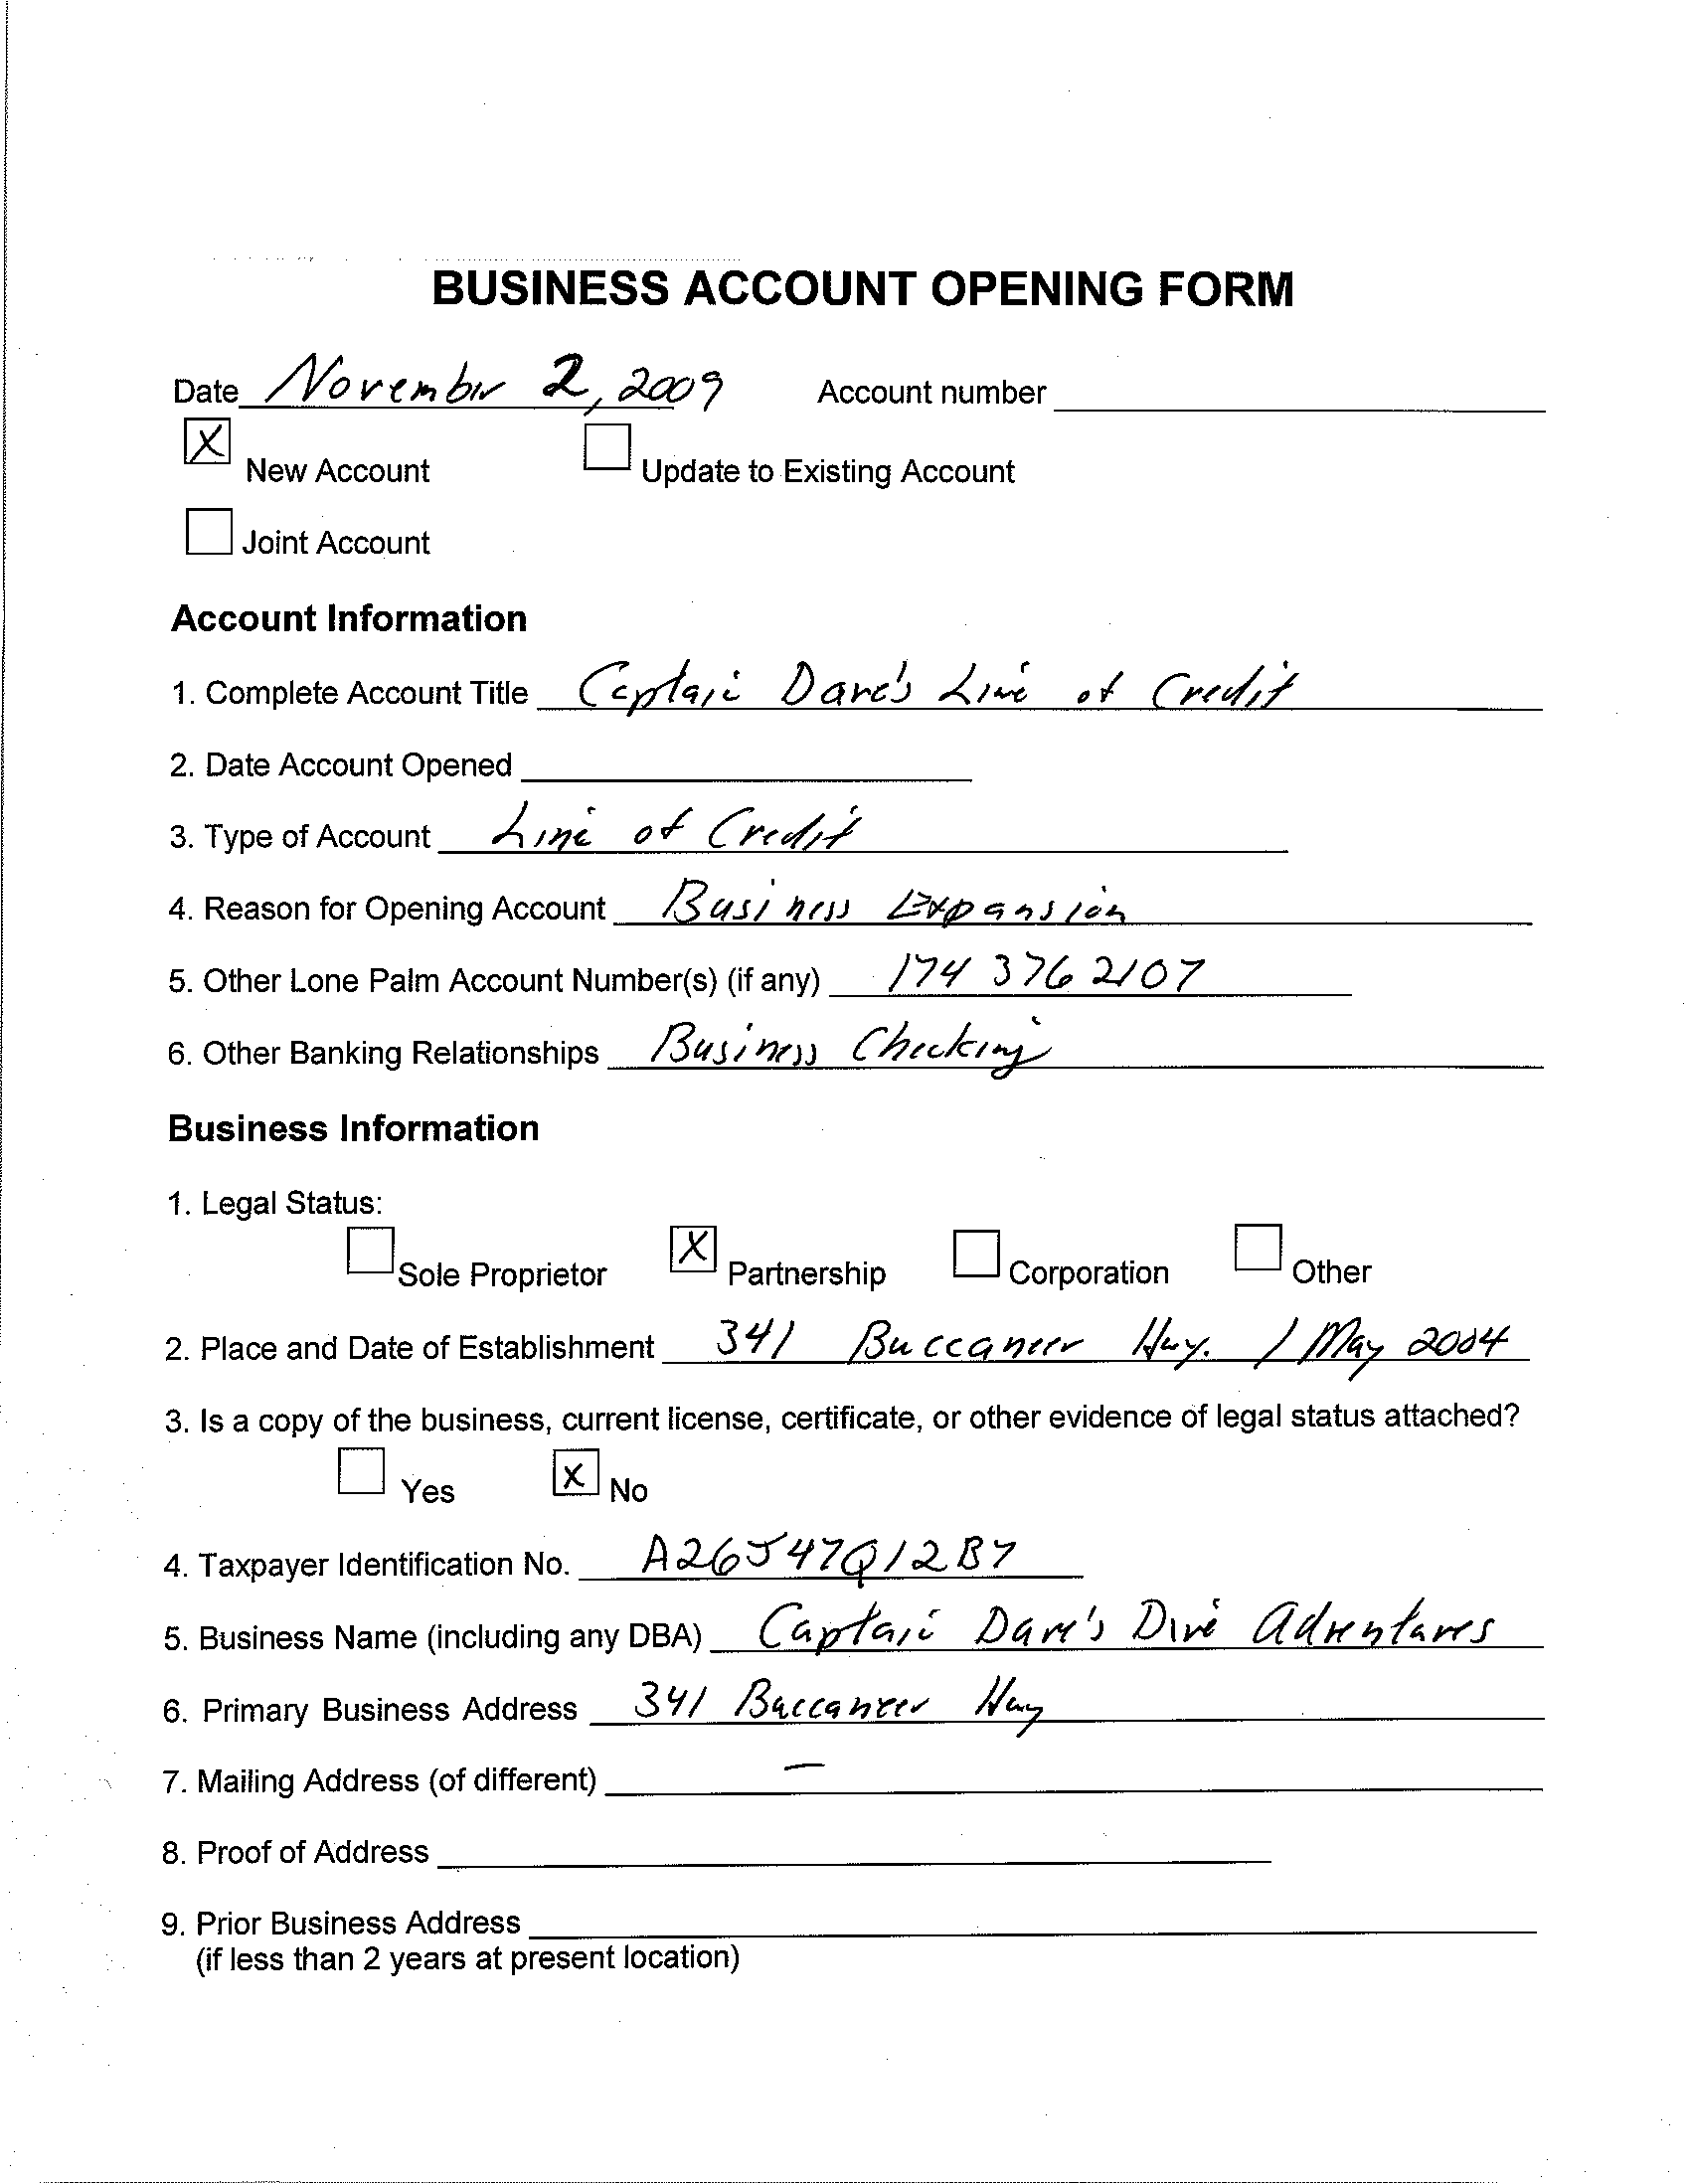 BUSINESS ACCOUNT OPENING FORM
Date November 2, 2009 Account number
X New Account Update to Existing Account
Joint Account
Account Information
1. Complete Account Title Captain Dave's Line of Credit
2. Date Account Opened
3. Type of Account Line of Credit
4. Reason for Opening Account Business Expansion
5. Other Lone Palm Account Number(s) (if any) 174 376 2107
6. Other Banking Relationships Business Checking
Business Information
1. Legal Status:
Sole Proprietor X Partnership Corporation Other
2. Place and Date of Establishment 341 Buccaneer Hwy. / May 2004
3. Is a copy of the business, current license, certificate, or other evidence of legal status attached?
Yes X No
4. Taxpayer Identification No. A26547Q12B7
5. Business Name (including any DBA) Captain Dave's Dive Adventures
6. Primary Business Address 341 Buccaneer Hwy
7. Mailing Address (of different) —
8. Proof of Address
9. Prior Business Address
(if less than 2 years at present location)